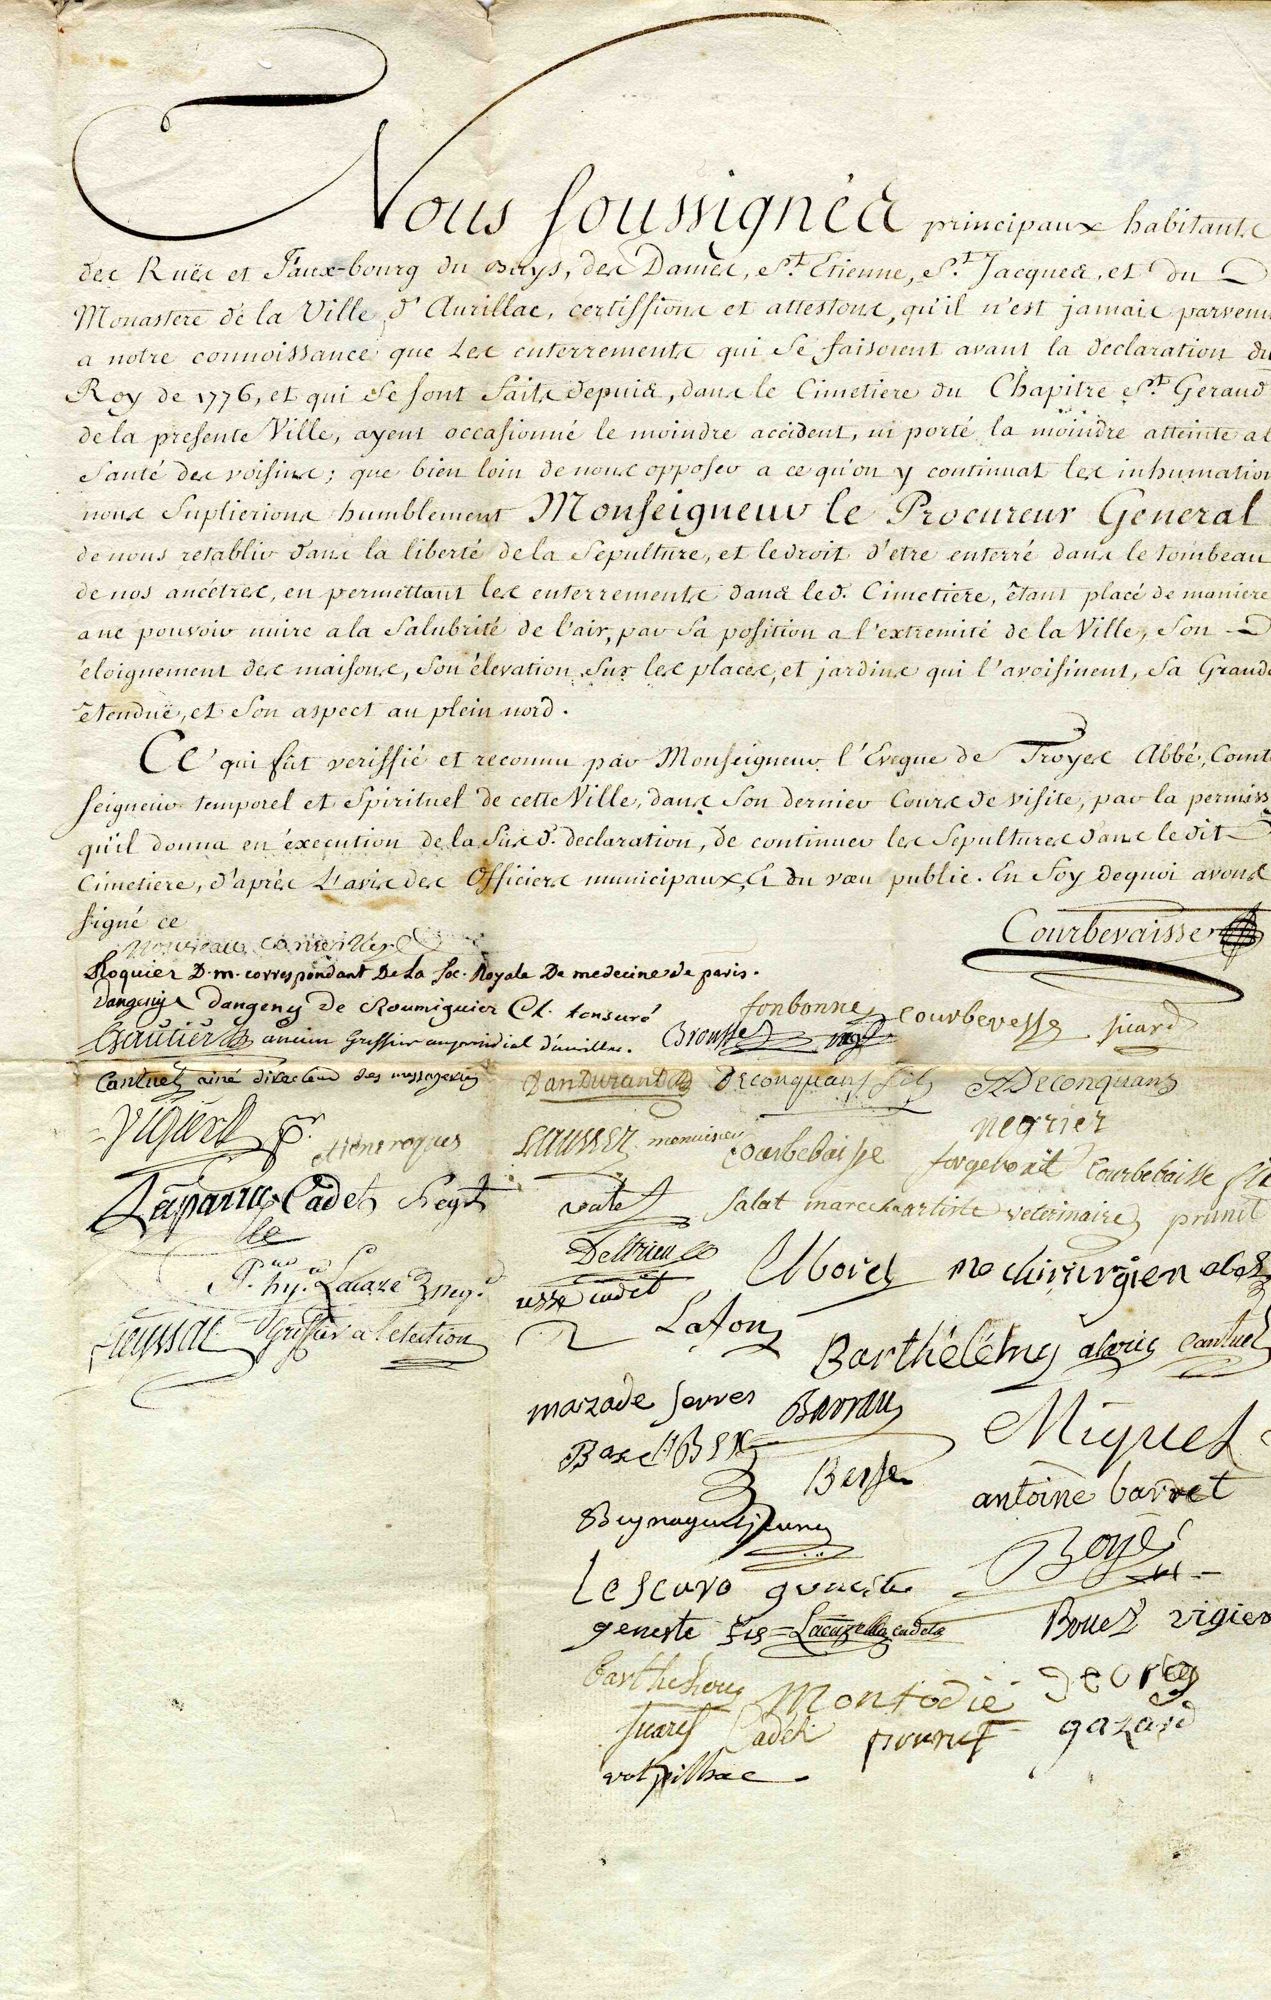 Nous soussignés principaux habitants
des Ruës et Faux-bourg du Buys, des Dames, St. Etienne, St. Jacques, et du
Monastere de la Ville d'Aurillac, certiffions et attestons, qu'il n'est jamais parvenu
a notre connoissance que Les enterrements qui se faisoient avant la declaration du
Roy de 1776, et qui se sont faits depuis, dans le Cimetiere du Chapitre St. Geraud
de la presente Ville, ayent occasionné le moindre accident, ni porté la moindre atteinte a l
Santé des voisins; que bien loin de nous opposer a ce qu'on y continuat les inhumation
nous Suplierions humblement Monseigneur le Procureur General
de nous retablir dans la liberté de la Sepulture, et le droit d'etre enterré dans le tombeau
de nos ancétres, en permettant les enterrements dans led. Cimetiere, étant placé de maniere
a ne pouvoir nuire a la Salubrité de l'air, par Sa position a l'extremité de la Ville, Son
éloignement des maisons, Son élevation Sur les places, et jardins qui l'avoisinent, Sa Grande
étenduë, et Son aspect au plein nord.
Ce qui fut veriffié et reconnu par Monseigneur l'Eveque de Troyes Abbé, Comte
seigneur temporel et Spirituel de cette Ville, dans Son dernier Cours de visite, par la permiss
qu'il donna en éxecution de la Sus d. declaration, de continuer les Sepultures dans le dit
Cimetiere, d'aprés L'avis des Officiers municipaux, & du vœu public. En foy de quoi avons
signé ce
Courbevaisse
Roquier D. m. correspondant De La Soc. Royale De medecine de paris.
Dangeny de Roumiguier Cl. tonsuré
fonbonne courbevesse sicard
Gautier ancien Greffier au presidial d'aurillac. Brousse
Cantuel ainé directeur des messageries Dandurand Deconquans fils Deconquans
negrier
Vigier pr. etiene roques Lausser menuisier courbebaisse forgeron courbebaisse
Laparra Cadet Negt salat marechal artiste veterinaire prunet
Deltrieu Abores me chirurgien
Lacaze neg. cadet
Leyssac Greffier a l'election Lafon Barthélémy Cantuel
mazade serres Barrau
Miquel
Besse
antoine barret
Boyé
Lescuro geneste
geneste fils Lacazelle cadet Bouet vigier
Barthelemy Montodié georg
sicard Cadet prunet gazard
volpilhac